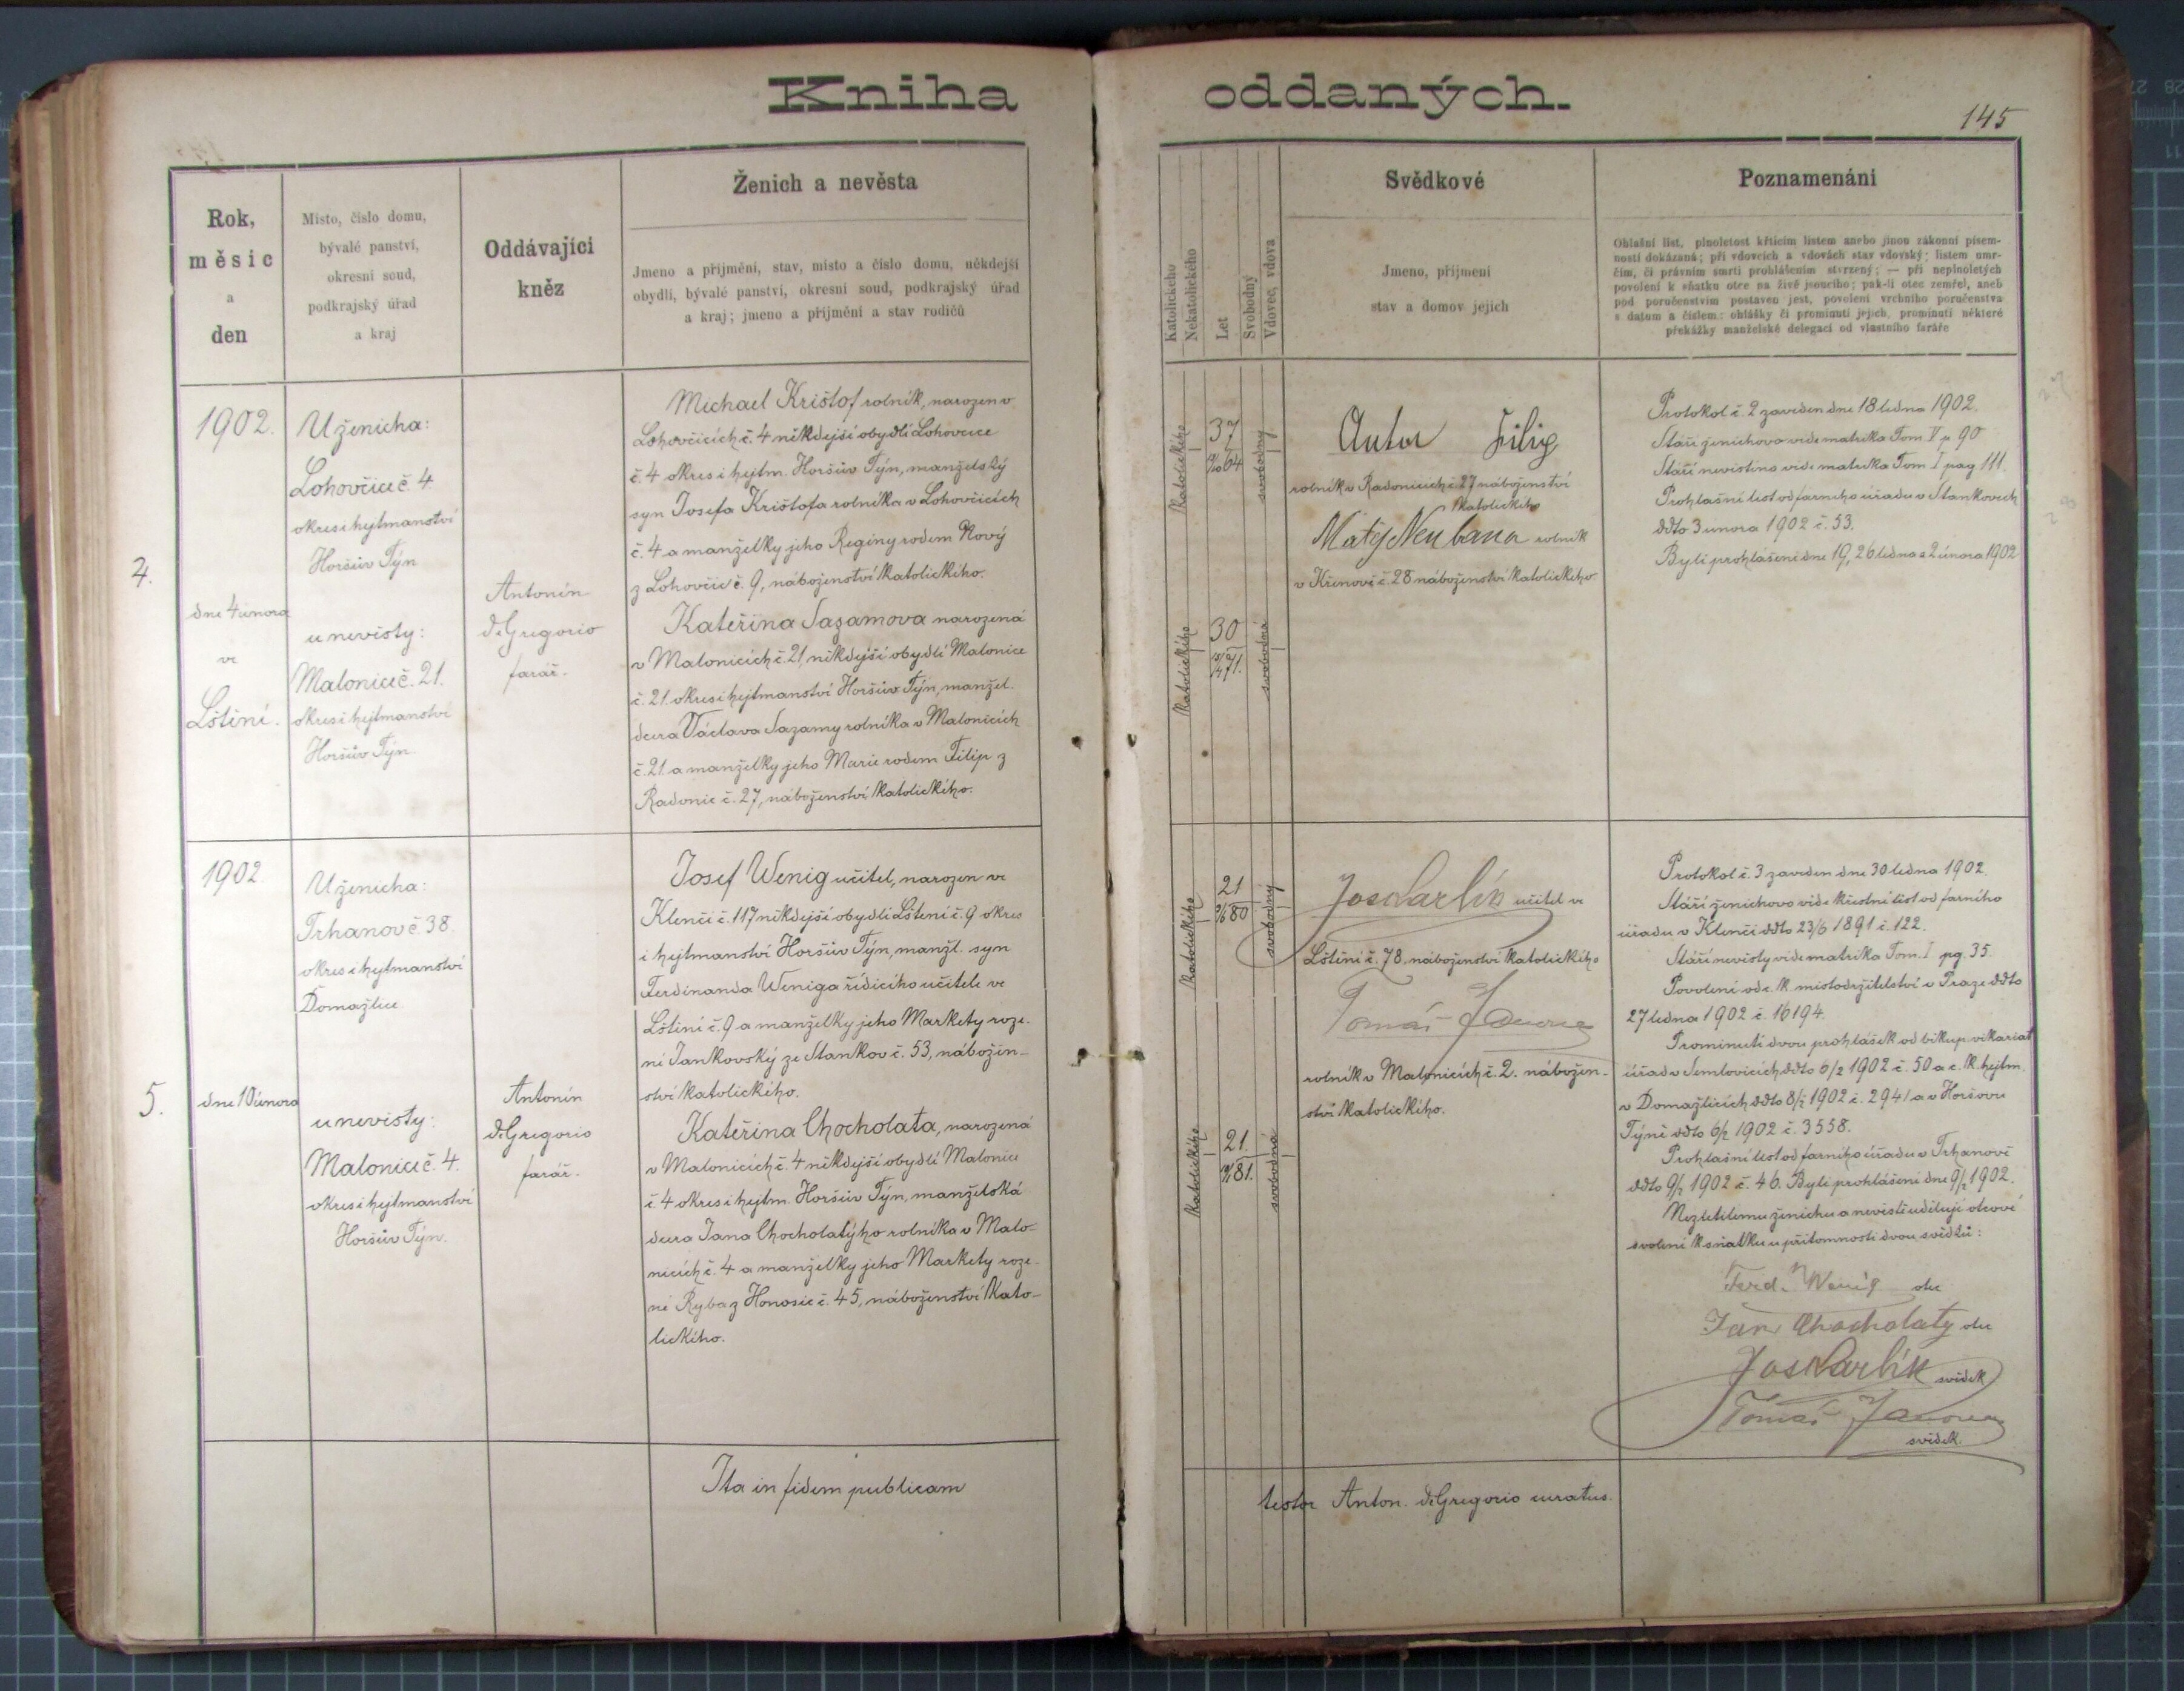 Kniha oddaných.
145
Rok,
měsíc
a
den
Místo, číslo domu,
bývalé panství,
okresní soud,
podkrajský úřad
a kraj
Oddávající
kněz
Ženich a nevěsta
Jmeno a příjmění, stav, místo a číslo domu, někdejší
obydlí, bývalé panství, okresní soud, podkrajský úřad
a kraj; jmeno a příjmění a stav rodičů
Katolického
Nekatolického
Let
Svobodný
Vdovec, vdova
Svědkové
Jmeno, příjmení
stav a domov jejich
Poznamenání
Ohlašní list, plnoletost křticím listem anebo jinou zákonní písem-
ností dokázaná; při vdovcích a vdovách stav vdovský; listem umr-
čím, či právním smrti prohlášením stvrzený; — při neplnoletých
povolení k sňatku otce na živě jsoucího; pak-li otec zemřel, aneb
pod poručenstvím postaven jest, povolení vrchního poručenstva
s datum a číslem: ohlášky či prominutí jejich, prominutí některé
překážky manželské delegací od vlastního faráře
1902.
dne 4 února
ve
Lštiní.
U ženicha:
Lohovčice č. 4.
okres i hejtmanství
Horšův Týn
u nevěsty:
Malonice č. 21.
okres i hejtmanství
Horšův Týn.
Antonín
deGregorio
farář.
Michael Krištof rolník, narozen v
Lohovčicích č. 4 někdejší obydlí Lohovčice
č. 4 okres i hejtm. Horšův Týn, manželský
syn Josefa Krištofa rolníka v Lohovčicích
č. 4 a manželky jeho Reginy rodem Nový
z Lohovčic č. 9, náboženství katolického.
Kateřina Sazamova narozená
v Malonicích č. 21, někdejší obydlí Malonice
č. 21 okres i hejtmanství Horšův Týn, manžel.
dcera Václava Sazamy rolníka v Malonicích
č. 21 a manželky jeho Marie rodem Filip z
Radonic č. 27, náboženství katolického.
katolického
37
64
svobodný
katolického
30
71.
svobodná
Anton Filip
rolník v Radonicích č. 27 náboženství
katolického
Matěj Neubauer rolník
v Křenově č. 28 náboženství katolického
Protokol č. 2 zaveden dne 18 ledna 1902.
Stáří ženichovo vide matrika Tom. V p. 90
Stáří nevěstino vide matrika Tom. I pag 111.
Prohlašní list od farního úřadu v Stankovech
ddto 3 února 1902 č. 53.
Byli prohlášeni dne 19, 26 ledna a 2 února 1902
1902.
5.
dne 10 února
U ženicha:
Trhanov č. 38.
okres i hejtmanství
Domažlice.
u nevěsty:
Malonice č. 4.
okres i hejtmanství
Horšův Týn.
Antonín
deGregorio
farář.
Josef Wenig učitel, narozen ve
Klenčí č. 117 někdejší obydlí Lštění č. 9 okres
i hejtmanství Horšův Týn, manžl. syn
Ferdinanda Weniga řídícího učitele ve
Lštiní č. 9 a manželky jeho Markety roze-
né Jankovský ze Stankov č. 53, nábožen-
ství katolického.
Kateřina Chocholata, narozená
v Malonicích č. 4 někdejší obydlí Malonice
č. 4 okres i hejtm. Horšův Týn, manželská
dcera Jana Chocholatýho rolníka v Malo-
nicích č. 4 a manželky jeho Markety roze-
né Ryba z Honosic č. 45, náboženství kato-
lického.
katolického
21
80
svobodný
katolického
21.
81.
svobodná
Jos Karlík učitel ve
Lštiní č. 78, náboženství katolického
Tomáš
rolník v Malonicích č. 2. nábožen-
ství katolického.
Protokol č. 3 zaveden dne 30 ledna 1902.
Stáří ženichovo vide křestní list od farního
úřadu v Klenčí ddto 23/6 1891 č. 122.
Stáří nevěsty vide matrika Tom. I pg. 35.
Povolení od c. k. místodržitelství v Praze ddto
27 ledna 1902 č. 16194.
Prominutí dvou prohlášek od bikup. vikariat
úřad v Semlovicích ddto 6/2 1902 č. 50 a c. k. hejtm.
v Domažlicích ddto 8/2 1902 č. 2941 a v Horšovu
Týně ddto 6/2 1902 č. 3558.
Prohlašní list od farního úřadu v Trhanově
ddto 9/2 1902 č. 46. Byli prohlášeni dne 9/2 1902.
Nezletilému ženichu a nevěstě udělují otcové
svolení k sňatku u přítomnosti dvou svědků:
Ferd. Wenig otec
Jan Chocholatý otec
Jos Karlík svědek
Tomáš
svědek.
Ita in fidem publicam
testor Anton. deGregorio curatus.